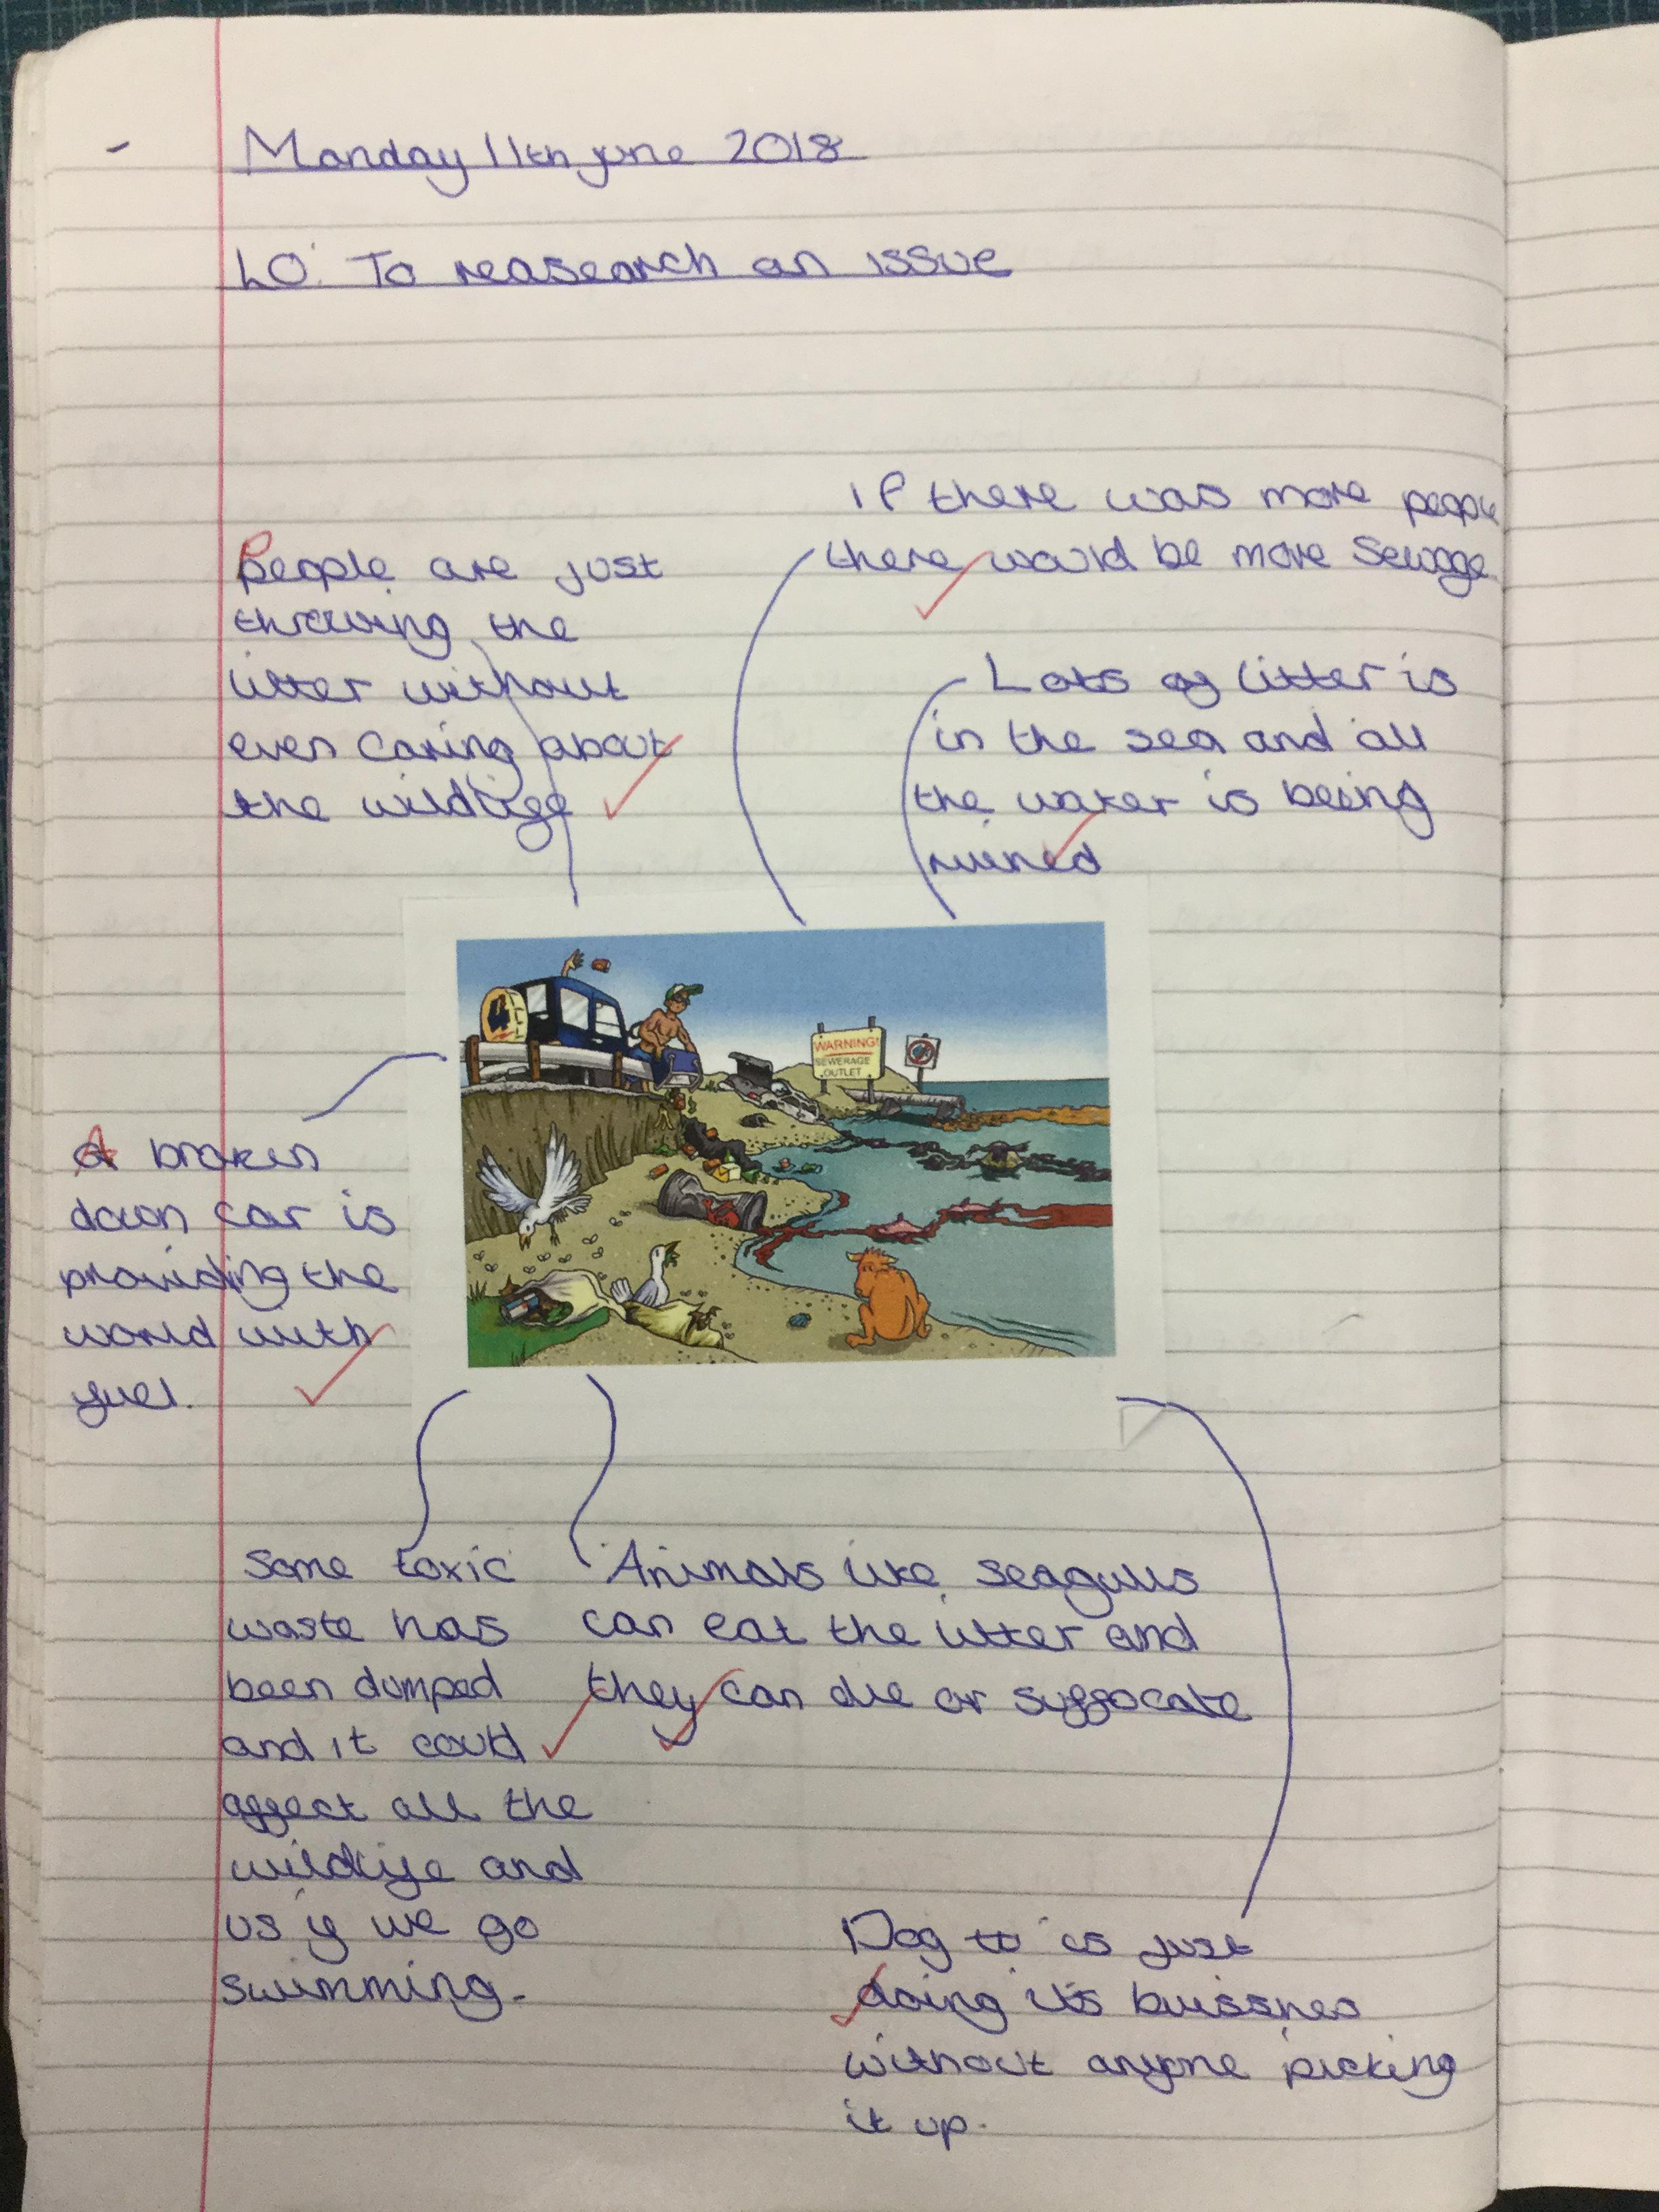 Monday 11th june 2018
LO: To reasearch an issue
If there was more people
there would be more sewage
People are just
throwing the
litter without
even caring about
the wildlife
Lots of litter is
in the sea and all
the water is being
ruined
4
WARNING!
SEWERAGE
OUTLET
A broken
down car is
providing the
world with
fuel.
Some toxic
waste has
been dumped
and it could
affect all the
wildlife and
us if we go
swimming.
Animals like seagulls
can eat the litter and
they can die or suffocate
Dog is just
doing it's buissnes
without anyone picking
it up.